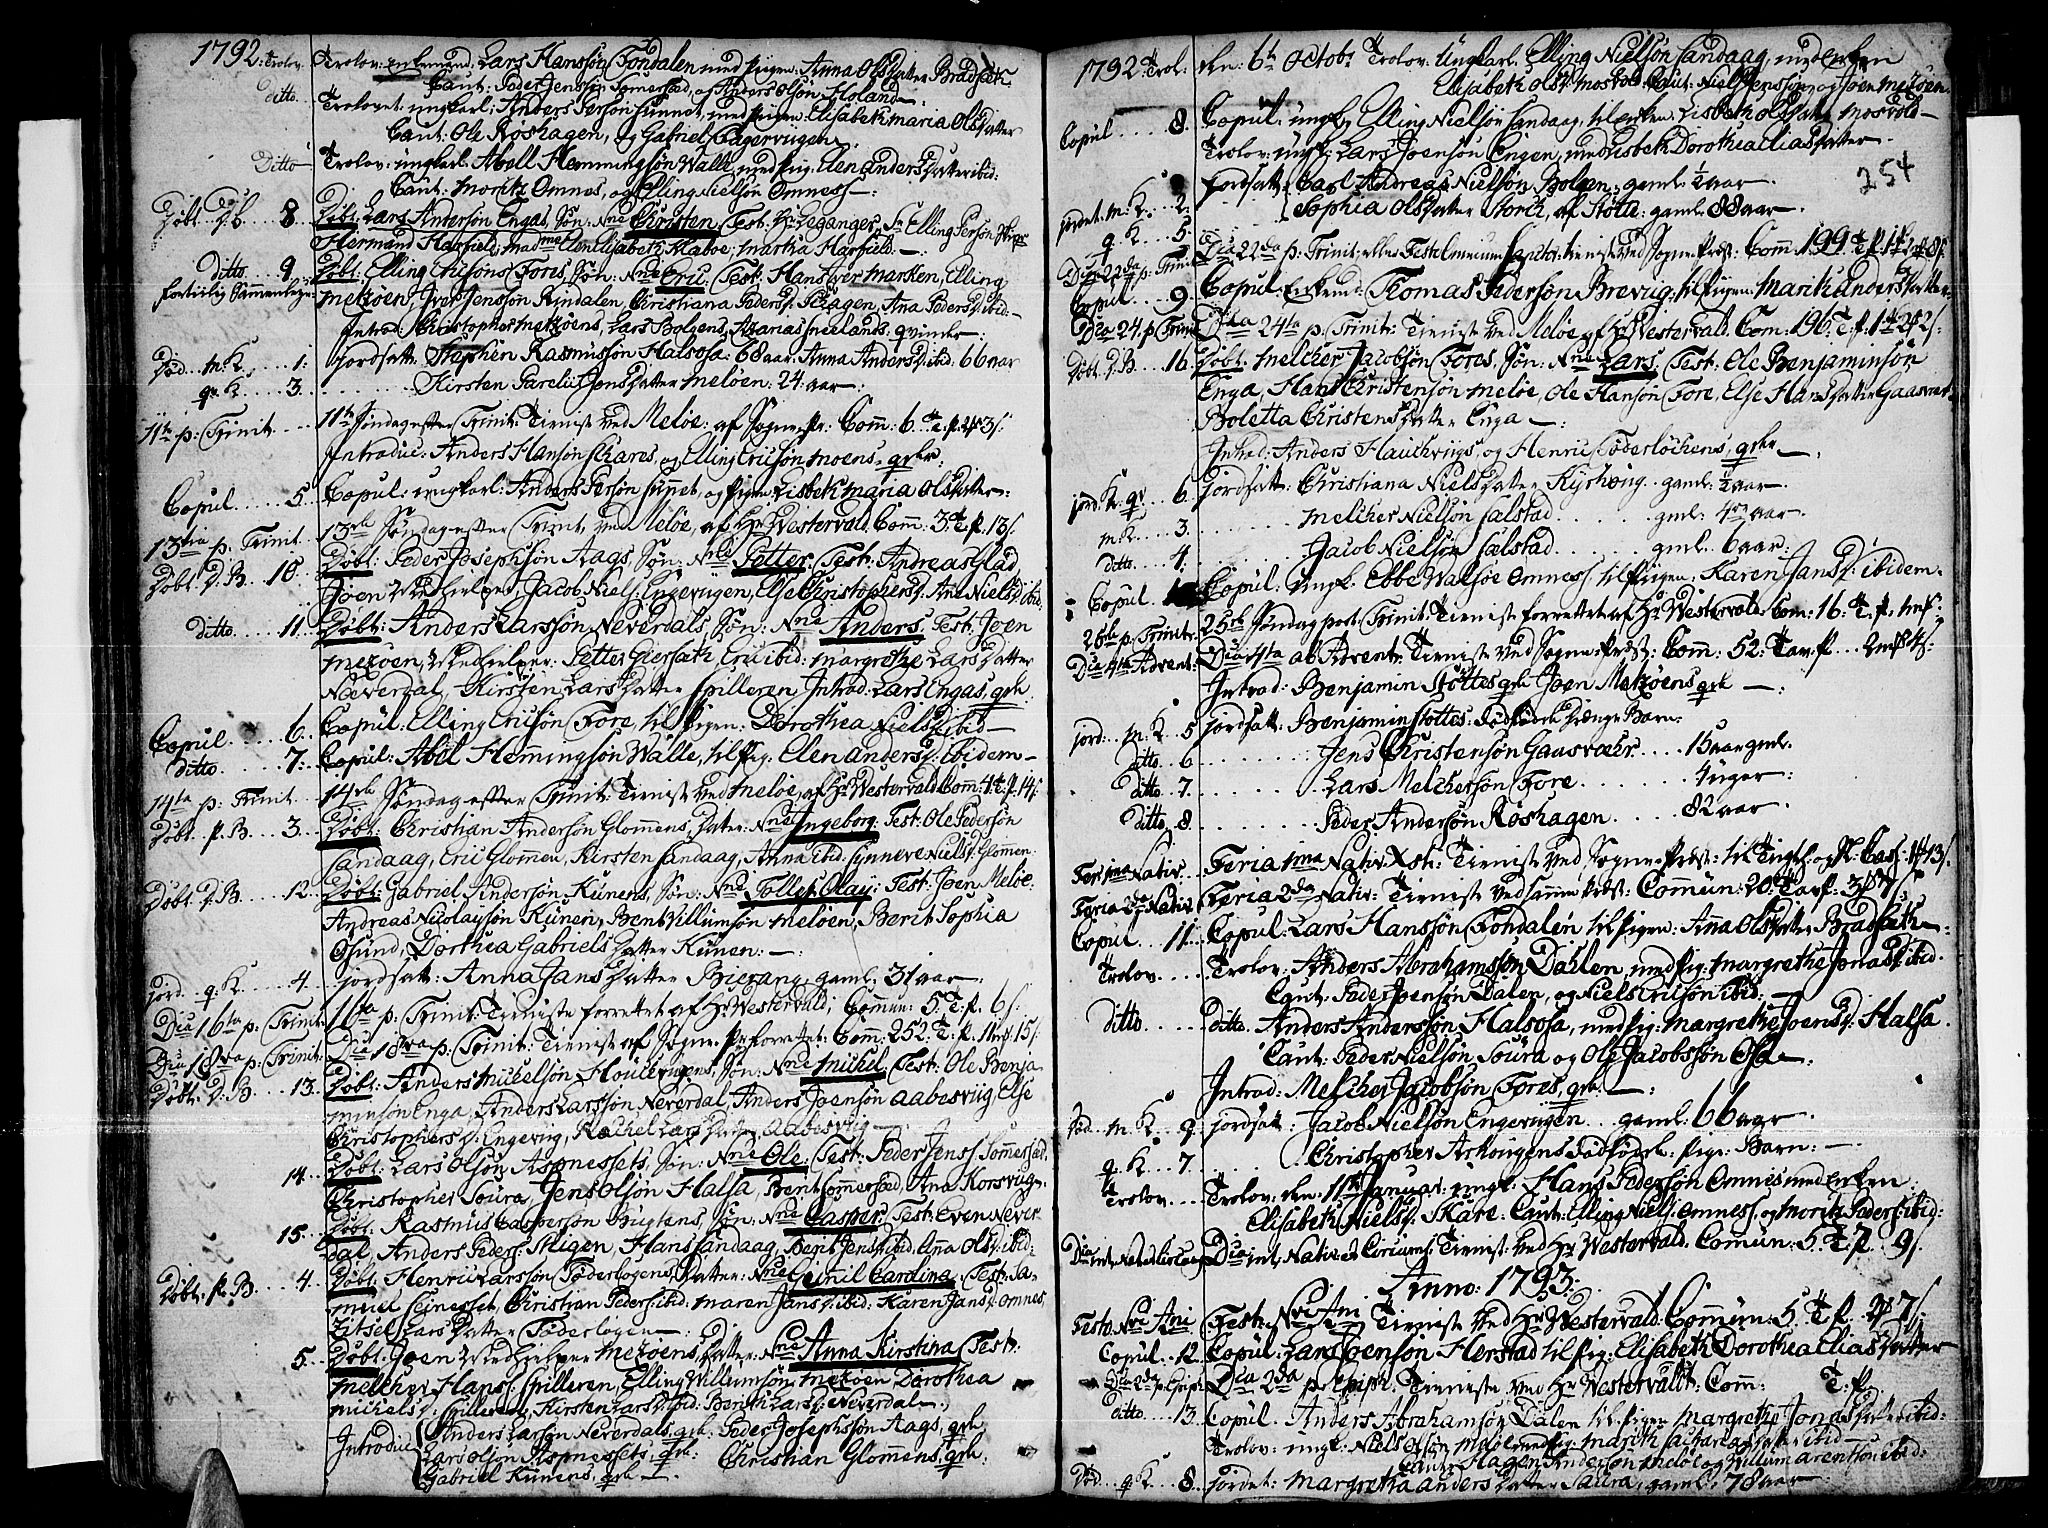 1792. Trolov. Trolov: Enkemand: Lars Hansøn Fondalen med Pigen: Anna Olsdatter Bradsætk.
Caut: Peder Jensen Somersæd, og Anders Olson Holand.
ditto. Trolovet: ungkarl: Anders Persøn Sunnet, med Pigen: Elisabeth Maria Olsdatter
Caut: Ole Roshagen, og Gabriel Engervigen.
Ditto Trolov: ungkarl: Abell Hemmingsøn Walle, med Pig: Elen Andersdatter ibid:
Caut: Moritz Omnes, og Elling Nielsøn Omness.
Døbt. D. B. 8. Døbt: Lars Andersøn Engas, Søn: Nne Christen, Test: Hr Leganger, Elling Persøn
Hermand Harfield, Madme Elen Elisabeth Klaboe: Martha Harfield.
Ditto 9. Døbt: Elling Erichsøns Fores, Søn: Nne Eric: Test: Hans Marsken, Elling
fortiilig Sammenleje: Metzøen, Iver Jensøn Rindalen, Christiana Pedersd: Skagen, Ana Pedersd: ibid:
Introd: Christopher Metzøens, Lars Bolgens, Azarias Neelands. qvinder.
Død. m. K. 1: Jordsatte: Stephen Rasmussøn Halsosa 68 aar: Anna Andersd: ibid: 66 aar
qv. K. 3. Kirsten Jensdatter Meløen. 24 aar.
11te p: Trinit. 11te Søndag efter Trinit: Tieniste ved Meløe: af Sognepr: Comm: 6.
Introduc: Anders Hansøn Skares, og Elling Ericsøn Moens, qvkr.
Copul. 5 Copul: ungkarl: Anders Persøn Sunnet, og Pigen: Lisbeth Maria Olsdatter:
13tia p: Trinit. 13de Søndag efter Trinit: ved Meløe, af Hr Westervald. Comm: 3.
Døbt. D. B. 10. Døbt: Peder Josephsøn Aags, Søn: Nne Petter: Test: Andreas Glad,
Joen Medhielper, Jacob Niels: Engevigen, Else Christophersd: Ane Nielsd: ibid.
ditto. 11. Døbt: Anders Larssøn Neverdals, Søn: Nne Anders. Test: Joen
Metzøen, Medhielper: Petter Giersath: Eric ibid: Margrethe Larsdatter
Næverdal, Kirsten Larsdatter Spilleren. Introd: Lars Engas, qvk.
Copul. 6. Copul: Elling Ericsøn Fore, til Pigen: Dorothea Nielsd: ibid
ditto. 7. Copul: Abel Hemmingsøn Walle, til Pig: Elen Andersd: ibidem
14ta p: Trinit 14de Søndag efter Trinit: Tieniste ved Meløe, af Hr Westervald Comm: 4.
Døbt. P. B. 3. Døbt: Christian Andersøn Glomens, Datter: Nne Ingeborg. Test: Ole Pedersøn
Sandaag, Eric Glomen, Kirsten Sandaag, Anna ibid: Synneve Nielsd: Glomen.
Døbt. D. B. 12. Døbt: Gabriel Andersøn Kunens, Søn: Nne Tollef Olay: Test: Joen Meløe:
Andreas Nicolaysøn Kunen, Bent Villumsøn Meløen, Berit Sophia
Osund, Dorthea Gabrielsdatter Kunen:
jord. q. K. 4. jordsatt: Anna Jansdatter Bierang. gaml: 31 aar
Dia 16ta p: Trinit. 16ta p: Trinit: Tieniste forrettet af Hr Westervald, Commun: 5. T. p. 6/.
Dia 18va p: Trinit: Dia 18va p: Trinit: Tieniste af Sogne Pr forrettet: Comm: 252.
Døbt. D. B. 13. Døbt: Anders Michelsøn Houchvigens, Søn: Nne Michel. Test: Ole Benja-
minsøn Enga, Anders Larssøn Neverdal, Anders Joensøn Aabesviig Else
Christophersd: Engevig, Rachel Larsdatter Aabesviig
14. Døbt: Lars Olsøn Aspnessets, Søn: Nne Ole: Test: Peder Jens: Sommersæd,
Christopher Soura, Jens Olsøn Halsa, Bent Sommersæd, Ana Korsvig.
15. Døbt: Rasmus Caspersøn Bugtens, Søn: Nne Casper. Test: Even Never-
dal, Anders Peders: Stigen, Hans Sandaag, Berit Jensd: ibid. Anna Olsd: ibid:
Døbt. P. B. 4. Døbt: Henric Larssøn Tøderlogens, Datter: Nne Gunil Cardina. Test: Sa-
muel Seinesset, Christian Peders: ibid: Maren Jansd: ibid: Karen Jansd: Omnes,
Zitsel Larsdatter Tøderlogen.
5. Døbt: Joen Medhielper Metzøens, Datter: Nne Anna Kirstina. Test:
Melcher Hans: Spilleren, Elling Willumsøn Metzøen Dorothea
Michelsd: Spilleren, Kirsten Larsd: ibid: Berith Larsd: Neverdalen.
Introduc. Anders Larsøn Neverdals, qvk. Peder Josephsøn Aags, qvk
Lars Olsøn Aspnessets, qvk. Christian Glomens, qvk.
Gabriel Kunens, qvk.
1792. Trol. den: 6te Octobr Trolov: Ungkarl: Elling Nielsøn Sandaag, med Enken
Elisabeth Olsd: Mosvold. Caut: Niels Jenssøn, og Joen Metzøen.
Copul. 8. Copul: ungk: Elling Nielsøn Sandaag, til Enken: Lisbeth Olsdatter Mosvold
Trolov: ungk: Lars Joensøn Engen, med Lisbeth Dorothea Eliasdatter.
254
jordet. m. K. 2. Jordsatt: Carl Andreas Nielsøn Bolgen: gaml: 1/2 aar
q. K. 5 Sophia Olsdatter Storch, af Støtt: gaml: 88 aar.
Dia 22da p: Trinit Dia 22da p: Trinit: eller Festo Omnium Sanctor: tieniste ved Sogne Præst: Com: 199
Copul. 9. Copul: Enkemd: Thomas Pedersøn Brevig, til Pigen: Marith Andersdatter.
Dia 24. p: Trinit Dia 24ta p: Trinit: Tienist: ved Meløe af Hr Westervald. Com: 196.
Døbt. D. B. 16. Døbt: Melcher Jacobsøn Fores, Søn: Nne Lars: Test: Ole Benjaminsøn
Enga, Hans Christensøn Meløe, Ole Hansøn Fore, Else Hansdatter Gaasvær
Boletta Christensdatter Enga.
Introd: Anders Hauchvigs, og Henric Tøderlochens, qvkr.
jord. K. qv. 6. jordsatt: Christiana Nielsdatter Kysvig. gaml: 1/2 aar
m. K. 3. Melcher Nielsøn Sælstad. gml: 4re aar.
ditto. 4. Jacob Nielsøn Sælstad. gml: 6 aar:
Copul. 10. Copul: ungk: Ebbe Walsøe Omness. til Pigen: Karen Jansd: ibidem.
25de p: Trinit: 25de Søndag post Trinit: Tieniste forrettet af Hr Westervald. Com: 16.
Dia 4ta Advent: Dia 4ta ab Advent: Tieniste ved Sogne Præst: Comm: 52:
Introd: Benjamin Støttes qvk Joen Metzøens qvk
jord: m. K. 5 jordsatt: Benjamin Støttes: Dødfødde Drænge Barn:
Ditto. 6 Jens Christensøn Gaasvær. 15 aar gml.
Ditto. 7. Lars Melchersøn Fore. 4 uger:
Ditto. 8. Peder Andersøn Roshagen. 82 aar
Fer: 1ma Nativ. Feria 1ma Nativ: Xsti: Tieniste ved Sogne Præst:
Feria 2da Nativ. Feria 2da Nativ: Tieniste ved samme Præst: Commun: 20.
Copul. 11. Copul: Lars Hanssøn Fondalen til Pigen: Anna Olsdatter Bradsætk
Trolov. Trolov: Anders Abrahamssøn Dahlen, med Pig: Margrethe Jonasd: ibid.
Caut: Peder Joensøn Dalen, og Niels Ericsøn ibid:
ditto. ditto. Anders Anderssøn Halsosa, med Pig: Margrethe Joensd: Halsa.
Caut: Peder Nielsøn Soura og Ole Jacobssøn Osa
Introd: Melcher Jacobsøn Fores, qvk.
død. m. K. 9 jordsatt: Jacob Nielsøn Engevigen. gaml: 66 aar
q. K. 7. Christopher Arhougens Dødfødt: Pige: Barn:
Trolov. Trolov: den: 11te Januar: ungk: Hans Pedersøn Omnes med Enken
Elisabeth Nielsd: Skare. Caut: Elling Niels: Omness, og Moritz Peders: ibid:
Dia int. Nativ. et Circumc: Tieniste: ved Hr Westervald. Comun: 5. T. p. 9/.
Anno: 1793:
Festo Nvi Ani Fest: Nvi Ani Tieniste ved Hr Westervald. Commun: 5
Copul. 12. Copul: Lars Joensøn Herstad til Pig: Elisabeth Dorothea Eliasdatter
Dia 2da p: Epiph. Dia 2da p: Epiph: Tieniste ved Hr Westervald: Com: T. p.
ditto. 13. Copul: Anders Abrahamsøn Dalen til Pigen Margrethe Jonasdatter ibid:
Trolov: ungk: Niels Olsøn Meløe med Pig: Marith Zachariasdatter ibid
Caut: Hagen Andersøn Meløe og Willum Arentsøn ibid:
Død. q. K. 8. jordet: Margretha Andersdatter Saura, gaml: 78 aar